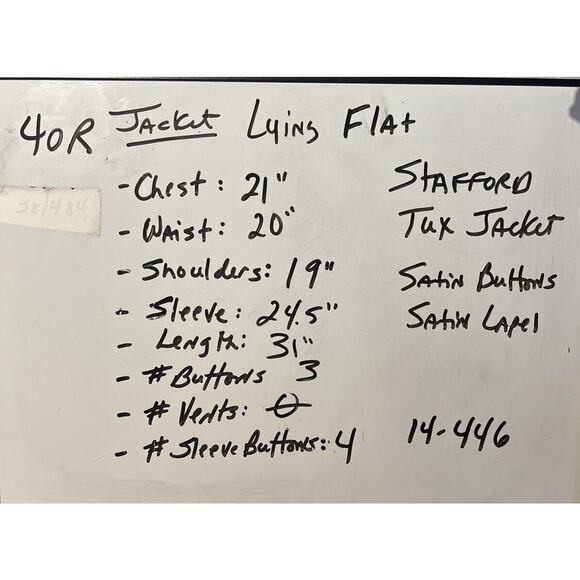 40R Jacket Lying Flat
- Chest: 21"
- Waist: 20"
- Shoulders: 19"
- Sleeve: 24.5"
- Length: 31"
- # Buttons 3
- # Vents: 0
- # Sleeve Buttons: 4
STAFFORD
Tux Jacket
Satin Buttons
Satin Lapel
14-446